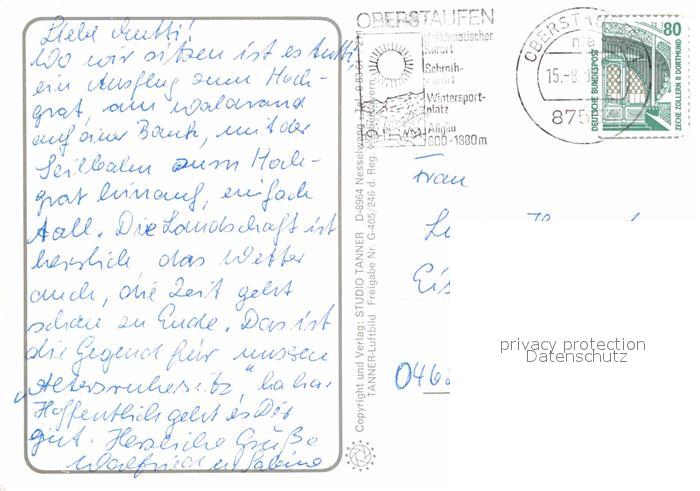 Liebe Mutti!
Wo wir sitzen ist es lustig,
ein Ausflug zum Hoch-
grat, am Waldrand
auf einer Bank, mit der
Seilbahn zum Hoch-
grat hinauf, einfach
toll. Die Landschaft ist
herrlich das Wetter
auch, die Zeit geht
schon zu Ende. Das ist
die Gegend für unseren
„Altersruhesitz", ha ha.
Hoffentlich geht es Dir
gut. Herzliche Grüße
Walfried u. Sabine
Copyright und Verlag: STUDIO TANNER D-8964 Nesselwang
TANNER-Luftbild Freigabe Nr. G-405/246 d. Reg.
OBERSTAUFEN
Kurort
Schroth-
kurort
Wintersport-
platz
Allgäu
800-1880m
OBERST
15.-8.
875
80
DEUTSCHE BUNDESPOST
ZECHE ZOLLERN II DORTMUND
Frau
046
privacy protection
Datenschutz